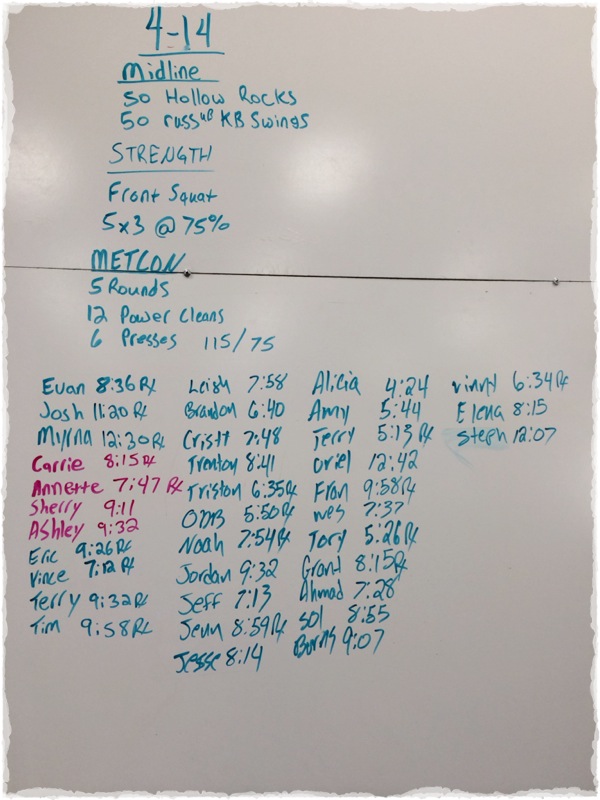 4-14
Midline
50 Hollow Rocks
50 russ KB Swings
STRENGTH
Front Squat
5x3 @ 75%
METCON
5 Rounds
12 Power Cleans
6 Presses 115/75
Evan 8:36 Rx
Josh 11:20 Rx
Myrna 12:30 Rx
Carrie 8:15 Rx
Annette 7:47 Rx
Sherry 9:11
Ashley 9:32
Eric 9:26 Rx
Vince 7:12 Rx
Terry 9:32 Rx
Tim 9:58 Rx
Leigh 7:58
Brandon 6:40
Cristt 7:48
Trenton 8:41
Triston 6:35 Rx
ODB 5:50 Rx
Noah 7:54 Rx
Jordan 9:32
Jeff 7:13
Jenn 8:59 Rx
Jesse 8:14
Alicia 4:24
Amy 5:44
Terry 5:13 Rx
Oriel 12:42
Fran 9:58 Rx
Wes 7:37
Tory 5:26 Rx
Grant 8:15 Rx
Ahmad 7:28
Sol 8:55
9:07
Vinny 6:34 Rx
Elena 8:15
Steph 12:07